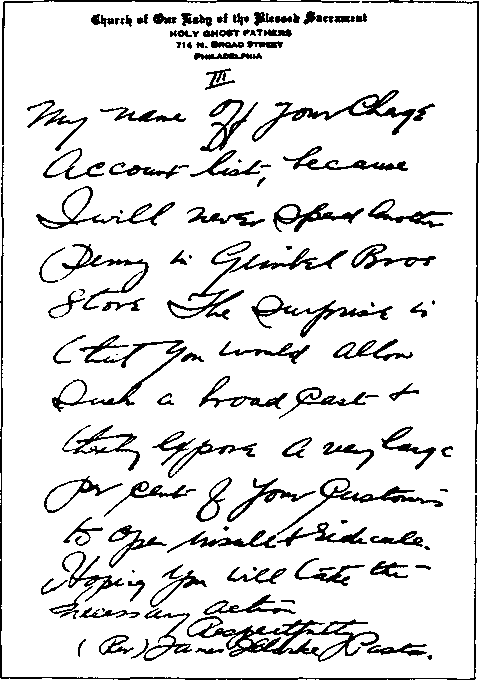 Church of Our Lady of the Blessed Sacrament
HOLY GHOST FATHERS
714 N. BROAD STREET
PHILADELPHIA
III
My name Off Your Charge
Account list, because
I will never spend another
Penny in Gimbel Bros
Store The Surprise is
that You would allow
Such a broad cast &
thereby expose a very large
per cent of Your Customers
to open insult & ridicule.
Hoping You will take the
necessary action
Respectfully
(Rev) James Pastor.